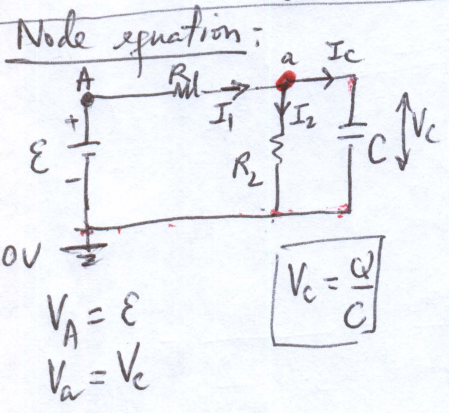 Node equation:
A
R₁
a
I_C
I₁
I₂
+
ε
-
R₂
C
V_C
0V
V_A = ε
V_a = V_C
V_C = Q/C